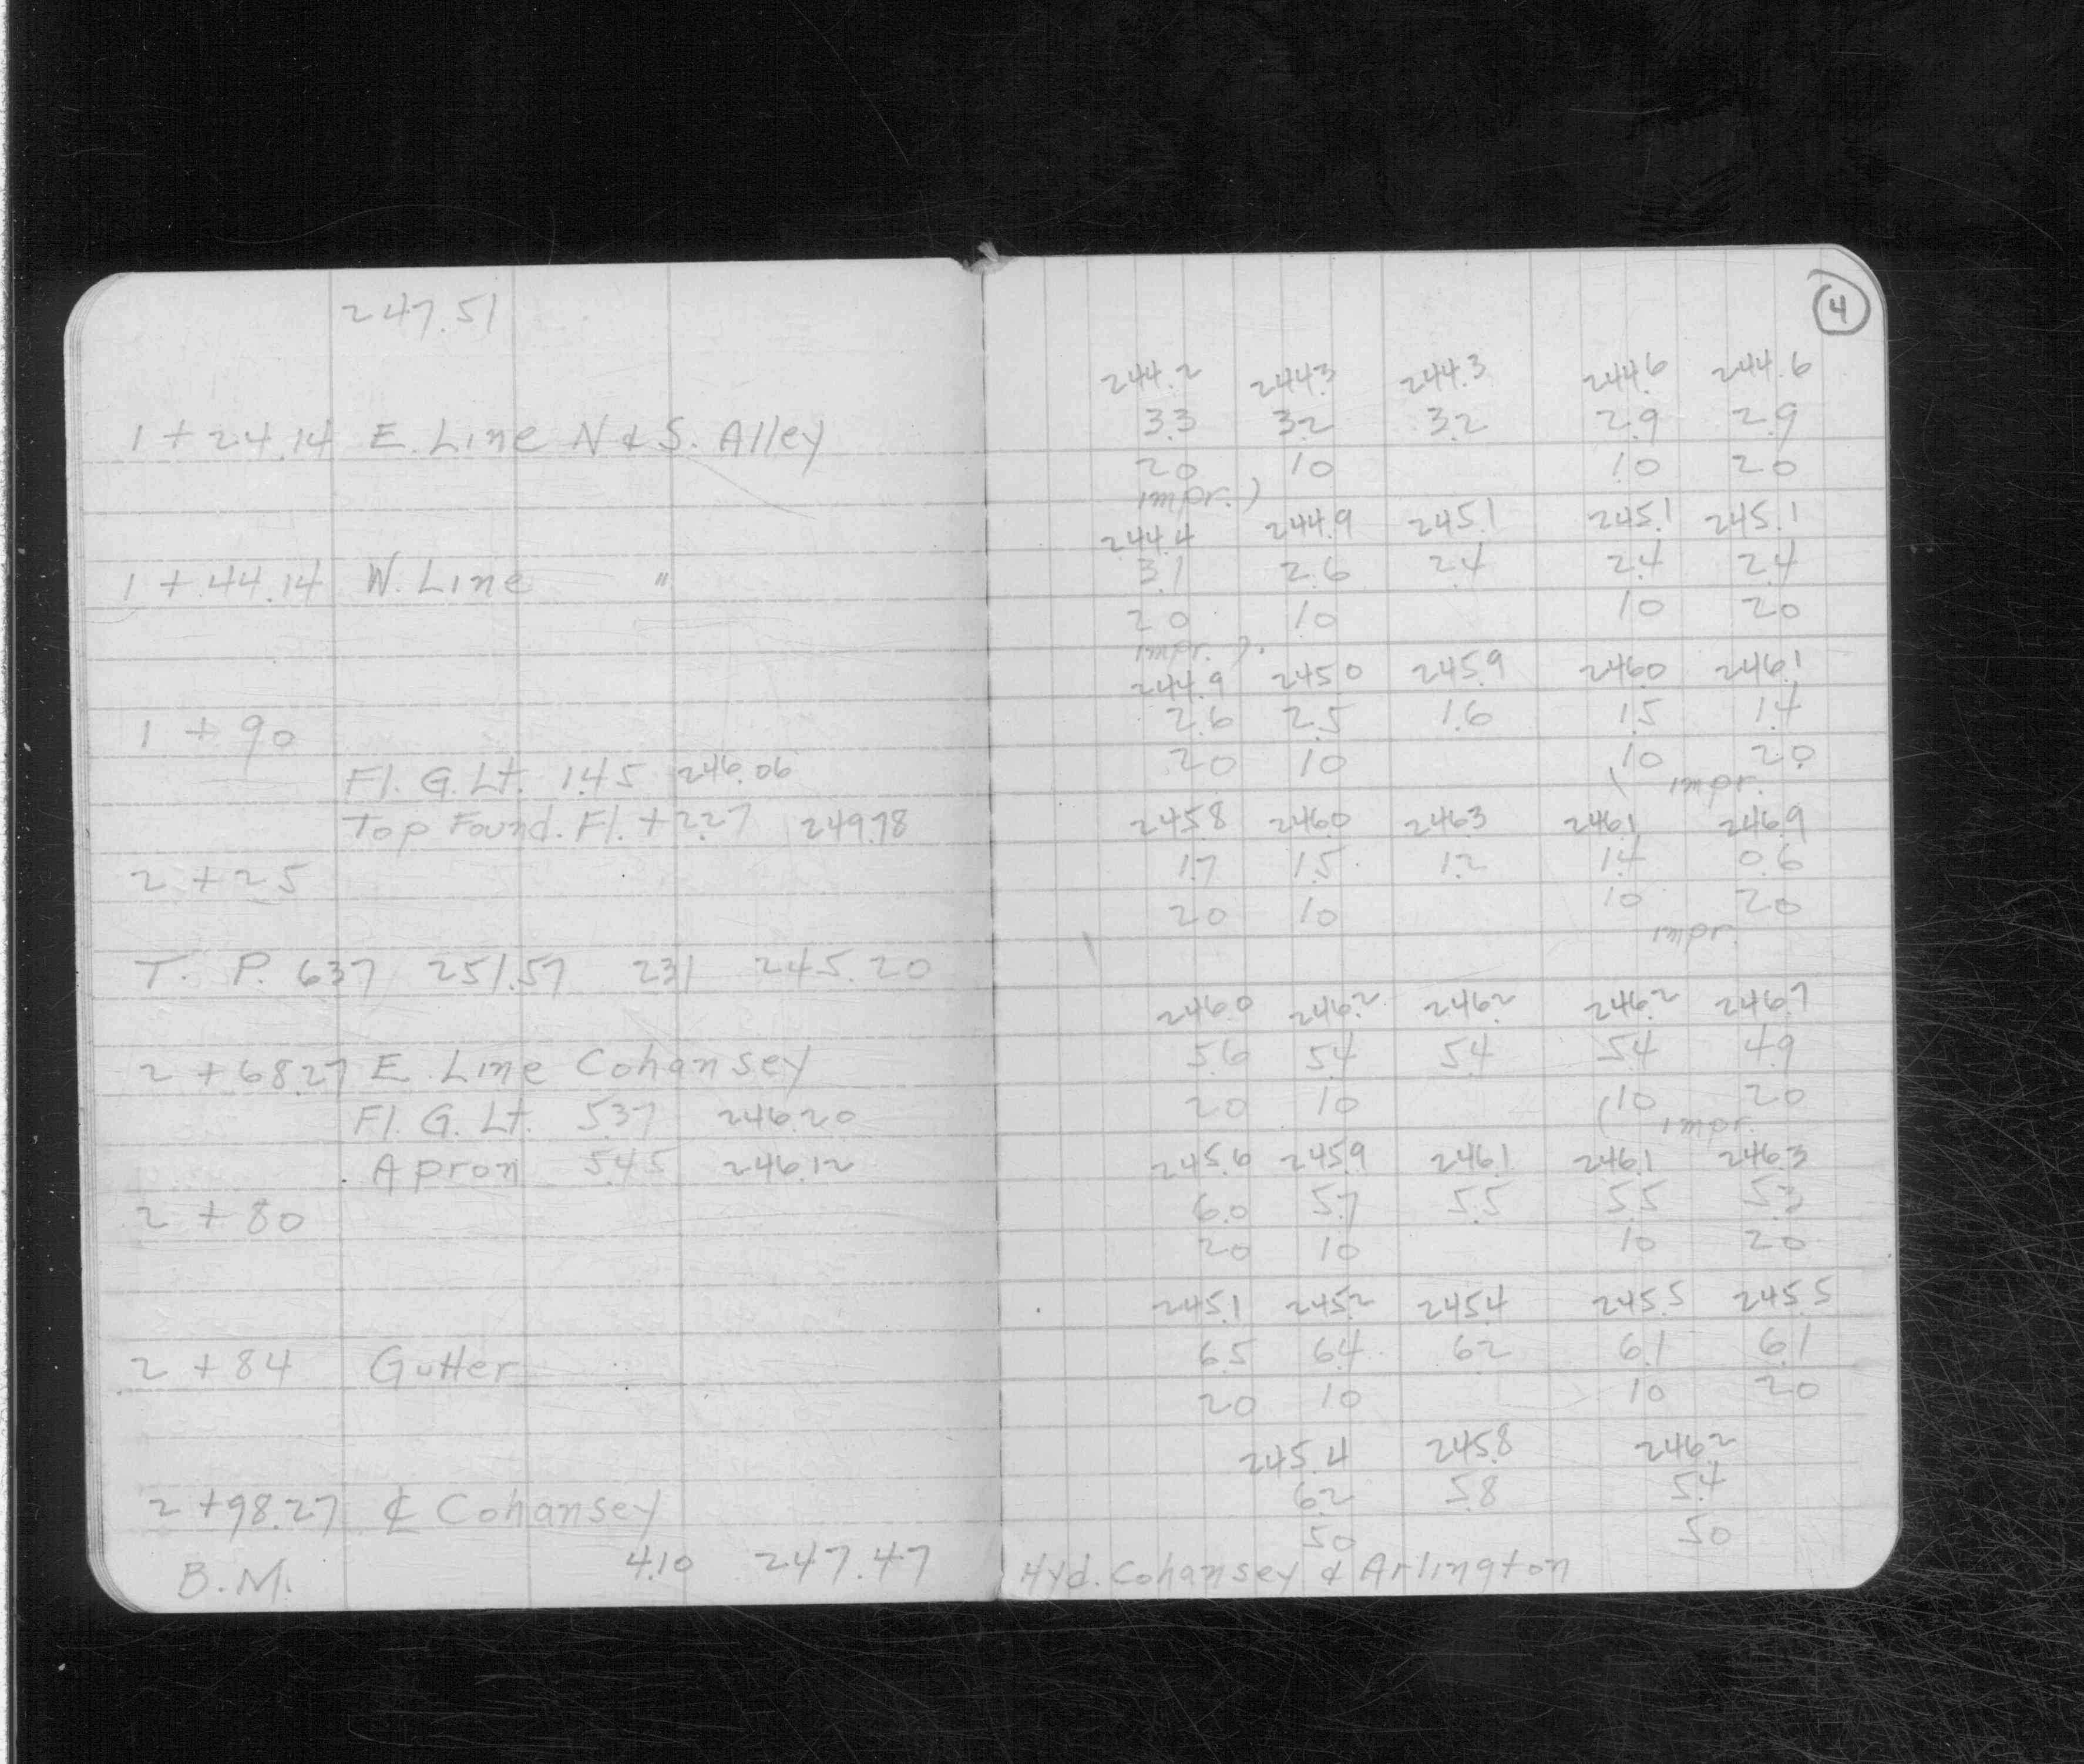 247.51
1 + 24.14 E. Line N & S. Alley
1 + 44.14 W. Line "
1 + 90
Fl. G. Lt. 1.45 246.06
Top Found. Fl. + 2.27 249.78
2 + 25
T. P. 6.37 251.57 2.31 245.20
2 + 68.27 E. Line Cohansey
Fl. G. Lt. 5.37 246.20
Apron 5.45 246.12
2 + 80
2 + 84 Gutter
2 + 98.27 ℄ Cohansey
B.M. 4.10 247.47
4
244.2 244.3 244.3 244.6 244.6
3.3 3.2 3.2 2.9 2.9
20 10 10 20
impr. )
244.4 244.9 245.1 245.1 245.1
3.1 2.6 2.4 2.4 2.4
20 10 10 20
impr. ).
244.9 245.0 245.9 246.0 246.1
2.6 2.5 1.6 1.5 1.4
20 10 10 20
( impr.
245.8 246.0 246.3 246.1 246.9
1.7 1.5 1.2 1.4 0.6
20 10 10 20
impr.
246.0 246.2 246.2 246.2 246.7
5.6 5.4 5.4 5.4 4.9
20 10 10 20
( impr.
245.6 245.9 246.1 246.1 246.3
6.0 5.7 5.5 5.5 5.3
20 10 10 20
245.1 245.2 245.4 245.5 245.5
6.5 6.4 6.2 6.1 6.1
20 10 10 20
245.4 245.8 246.2
6.2 5.8 5.4
50 50
Hyd. Cohansey & Arlington